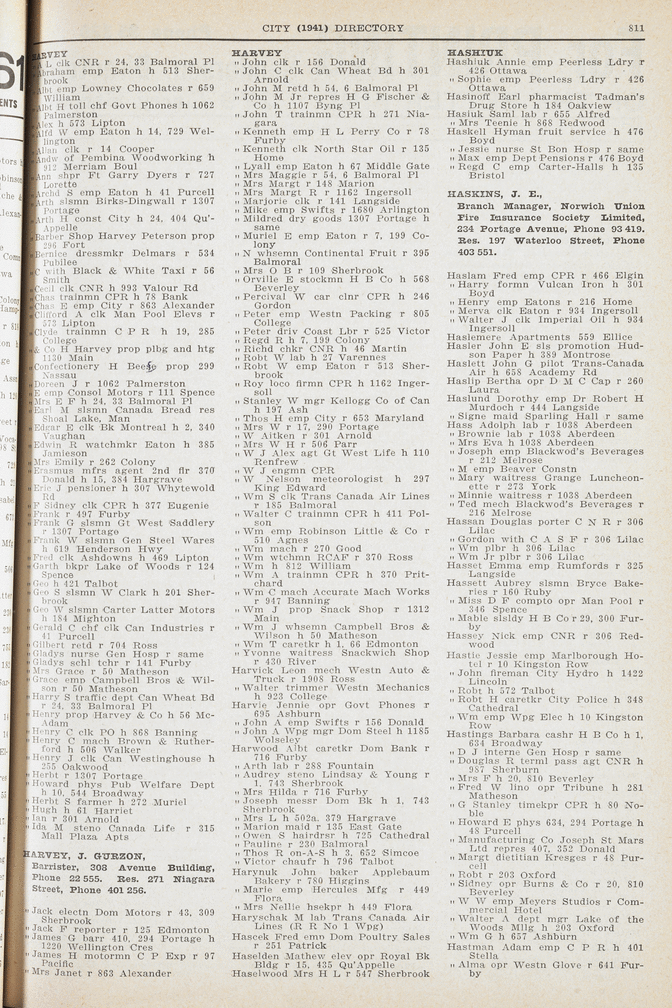 CITY (1941) DIRECTORY
811
HARVEY
L clk CNR r 24, 33 Balmoral Pl
Abraham emp Eaton h 513 Sher-
brook
Albt emp Lowney Chocolates r 659
William
Albt H toll chf Govt Phones h 1062
Palmerston
Alex h 573 Lipton
Alfd W emp Eaton h 14, 729 Wel-
lington
Allan clk r 14 Cooper
Andw of Pembina Woodworking h
912 Merriam Boul
Ann shpr Ft Garry Dyers r 727
Lorette
Archd S emp Eaton h 41 Purcell
Arth slsmn Birks-Dingwall r 1307
Portage
Arth H const City h 24, 404 Qu'-
Appelle
Barber Shop Harvey Peterson prop
296 Fort
Bernice dressmkr Delmars r 534
Jubilee
C with Black & White Taxi r 56
Smith
Cecil clk CNR h 993 Valour Rd
Chas trainmn CPR h 78 Bank
Chas E emp City r 863 Alexander
Clifford A clk Man Pool Elevs r
573 Lipton
Clyde trainmn C P R h 19, 285
College
& Co H Harvey prop plbg and htg
1130 Main
Confectionery H Beese prop 299
Nassau
Doreen J r 1062 Palmerston
E emp Consol Motors r 111 Spence
Mrs E F h 24, 33 Balmoral Pl
Earl M slsmn Canada Bread res
Shoal Lake, Man
Edgar E clk Bk Montreal h 2, 340
Vaughan
Edwin R watchmkr Eaton h 385
Jamieson
Mrs Emily r 262 Colony
Erasmus mfrs agent 2nd flr 370
Donald h 15, 384 Hargrave
Eric J pensioner h 307 Whytewold
Rd
F Sidney clk CPR h 377 Eugenie
Frank r 497 Furby
Frank G slsmn Gt West Saddlery
r 1307 Portage
Frank W slsmn Gen Steel Wares
h 619 Henderson Hwy
Fred clk Ashdowns h 469 Lipton
Garth bkpr Lake of Woods r 124
Spence
Geo h 421 Talbot
Geo S slsmn W Clark h 201 Sher-
brook
Geo W slsmn Carter Latter Motors
h 184 Mighton
Gerald C chf clk Can Industries r
41 Purcell
Gilbert retd r 704 Ross
Gladys nurse Gen Hosp r same
Gladys schl tchr r 141 Furby
Mrs Grace r 50 Matheson
Grace emp Campbell Bros & Wil-
son r 50 Matheson
Harry S traffic dept Can Wheat Bd
r 24, 33 Balmoral Pl
Henry prop Harvey & Co h 56 Mc-
Adam
Henry C clk PO h 868 Banning
Henry C mach Brown & Ruther-
ford h 506 Walker
Henry J clk Can Westinghouse h
255 Oakwood
Herbt r 1307 Portage
Howard phys Pub Welfare Dept
h 10, 544 Broadway
Herbt S farmer h 272 Muriel
Hugh h 61 Harriet
Ian r 301 Arnold
Ida M steno Canada Life r 315
Mall Plaza Apts
HARVEY, J. GURZON,
Barrister, 308 Avenue Building,
Phone 22 555. Res. 271 Niagara
Street, Phone 401 256.
" Jack electn Dom Motors r 43, 309
Sherbrook
" Jack F reporter r 125 Edmonton
" James G barr 410, 294 Portage h
1220 Wellington Cres
" James H motormn C P Exp r 97
Pacific
" Mrs Janet r 863 Alexander
HARVEY
" John clk r 156 Donald
" John C clk Can Wheat Bd h 301
Arnold
" John M retd h 54, 6 Balmoral Pl
" John M Jr repres H G Fischer &
Co h 1107 Byng Pl
" John T trainmn CPR h 271 Nia-
gara
" Kenneth emp H L Perry Co r 78
Furby
" Kenneth clk North Star Oil r 135
Home
" Lyall emp Eaton h 67 Middle Gate
" Mrs Maggie r 54, 6 Balmoral Pl
" Mrs Margt r 148 Marion
" Mrs Margt R r 1162 Ingersoll
" Marjorie clk r 141 Langside
" Mike emp Swifts r 1680 Arlington
" Mildred dry goods 1307 Portage h
same
" Muriel E emp Eaton r 7, 199 Co-
lony
" N whsemn Continental Fruit r 395
Balmoral
" Mrs O B r 109 Sherbrook
" Orville E stockmn H B Co h 568
Beverley
" Percival W car clnr CPR h 246
Gordon
" Peter emp Westn Packing r 805
College
" Peter driv Coast Lbr r 525 Victor
" Regd R h 7, 199 Colony
" Richd chkr CNR h 46 Martin
" Robt W lab h 27 Varennes
" Robt W emp Eaton r 513 Sher-
brook
" Roy loco firmn CPR h 1162 Inger-
soll
" Stanley W mgr Kellogg Co of Can
h 197 Ash
" Thos H emp City r 653 Maryland
" Mrs W r 17, 290 Portage
" W Aitken r 301 Arnold
" Mrs W H r 506 Parr
" W J Alex agt Gt West Life h 110
Renfrew
" W J engmn CPR
" W Nelson meteorologist h 297
King Edward
" Wm S clk Trans Canada Air Lines
r 185 Balmoral
" Walter C trainmn CPR h 411 Pol-
son
" Wm emp Robinson Little & Co r
510 Agnes
" Wm mach r 270 Good
" Wm wtchmn RCAF r 370 Ross
" Wm h 812 William
" Wm A trainmn CPR h 370 Prit-
chard
" Wm C mach Accurate Mach Works
r 947 Banning
" Wm J prop Snack Shop r 1312
Main
" Wm J whsemn Campbell Bros &
Wilson h 50 Matheson
" Wm T caretkr h 1, 66 Edmonton
" Yvonne waitress Snackwich Shop
r 430 River
Harvick Leon mech Westn Auto &
Truck r 1908 Ross
" Walter trimmer Westn Mechanics
h 923 College
Harvie Jennie opr Govt Phones r
695 Ashburn
" John A emp Swifts r 156 Donald
" John A Wpg mgr Dom Steel h 1185
Wolseley
Harwood Albt caretkr Dom Bank r
716 Furby
" Arth lab r 288 Fountain
" Audrey steno Lindsay & Young r
1, 743 Sherbrook
" Mrs Hilda r 716 Furby
" Joseph messr Dom Bk h 1, 743
Sherbrook
" Mrs L h 502a, 379 Hargrave
" Marion maid r 135 East Gate
" Owen S hairdrsr h 725 Cathedral
" Pauline r 230 Balmoral
" Thos R on-A-S h 3, 652 Simcoe
" Victor chaufr h 796 Talbot
Harynuk John baker Applebaum
Bakery r 780 Higgins
" Marie emp Hercules Mfg r 449
Flora
" Mrs Nellie hsekpr h 449 Flora
Haryschak M lab Trans Canada Air
Lines (R R No 1 Wpg)
Hascek Fred emp Dom Poultry Sales
r 251 Patrick
Haselden Mathew elev opr Royal Bk
Bldg r 15, 435 Qu'Appelle
Haselwood Mrs H L r 547 Sherbrook
HASHIUK
Hashiuk Annie emp Peerless Ldry r
426 Ottawa
" Sophie emp Peerless Ldry r 426
Ottawa
Hasinoff Earl pharmacist Tadman's
Drug Store h 184 Oakview
Hasiuk Saml lab r 655 Alfred
" Mrs Teenie h 868 Redwood
Haskell Hyman fruit service h 476
Boyd
" Jessie nurse St Bon Hosp r same
" Max emp Dept Pensions r 476 Boyd
" Regd C emp Carter-Halls h 135
Bristol
HASKINS, J. E.,
Branch Manager, Norwich Union
Fire Insurance Society Limited,
234 Portage Avenue, Phone 93 419.
Res. 197 Waterloo Street, Phone
403 551.
Haslam Fred emp CPR r 466 Elgin
" Harry formn Vulcan Iron h 301
Boyd
" Henry emp Eatons r 216 Home
" Merva clk Eaton r 934 Ingersoll
" Walter J clk Imperial Oil h 934
Ingersoll
Haslemere Apartments 559 Ellice
Hasler John E sls promotion Hud-
son Paper h 389 Montrose
Haslett John G pilot Trans-Canada
Air h 658 Academy Rd
Haslip Bertha opr D M C Cap r 260
Laura
Haslund Dorothy emp Dr Robert H
Murdoch r 444 Langside
" Signe maid Sparling Hall r same
Hass Adolph lab r 1038 Aberdeen
" Brownie lab r 1038 Aberdeen
" Mrs Eva h 1038 Aberdeen
" Joseph emp Blackwod's Beverages
r 212 Melrose
" M emp Beaver Constn
" Mary waitress Grange Luncheon-
ette r 273 York
" Minnie waitress r 1038 Aberdeen
" Ted mech Blackwod's Beverages r
216 Melrose
Hassan Douglas porter C N R r 306
Lilac
" Gordon with C A S F r 306 Lilac
" Wm plbr h 306 Lilac
" Wm Jr plbr r 306 Lilac
Hasset Emma emp Rumfords r 325
Langside
Hassett Aubrey slsmn Bryce Bake-
ries r 160 Ruby
" Miss D F compto opr Man Pool r
346 Spence
" Mable slsldy H B Co r 29, 300 Fur-
by
Hassey Nick emp CNR r 306 Red-
wood
Hastie Jessie emp Marlborough Ho-
tel r 10 Kingston Row
" John fireman City Hydro h 1422
Lincoln
" Robt h 572 Talbot
" Robt H caretkr City Police h 348
Cathedral
" Wm emp Wpg Elec h 10 Kingston
Row
Hastings Barbara cashr H B Co h 1,
634 Broadway
" D J interne Gen Hosp r same
" Douglas R terml pass agt CNR h
987 Sherburn
" Mrs F h 20, 810 Beverley
" Fred W lino opr Tribune h 281
Matheson
" G Stanley timekpr CPR h 80 No-
ble
" Howard E phys 634, 294 Portage h
48 Purcell
" Manufacturing Co Joseph St Mars
Ltd repres 407, 352 Donald
" Margt dietitian Kresges r 48 Pur-
cell
" Robt r 203 Oxford
" Sidney opr Burns & Co r 20, 810
Beverley
" W W emp Meyers Studios r Com-
mercial Hotel
" Walter A dept mgr Lake of the
Woods Mllg h 203 Oxford
" Wm G h 657 Ashburn
Hastman Adam emp C P R h 401
Stella
" Alma opr Westn Glove r 641 Fur-
by